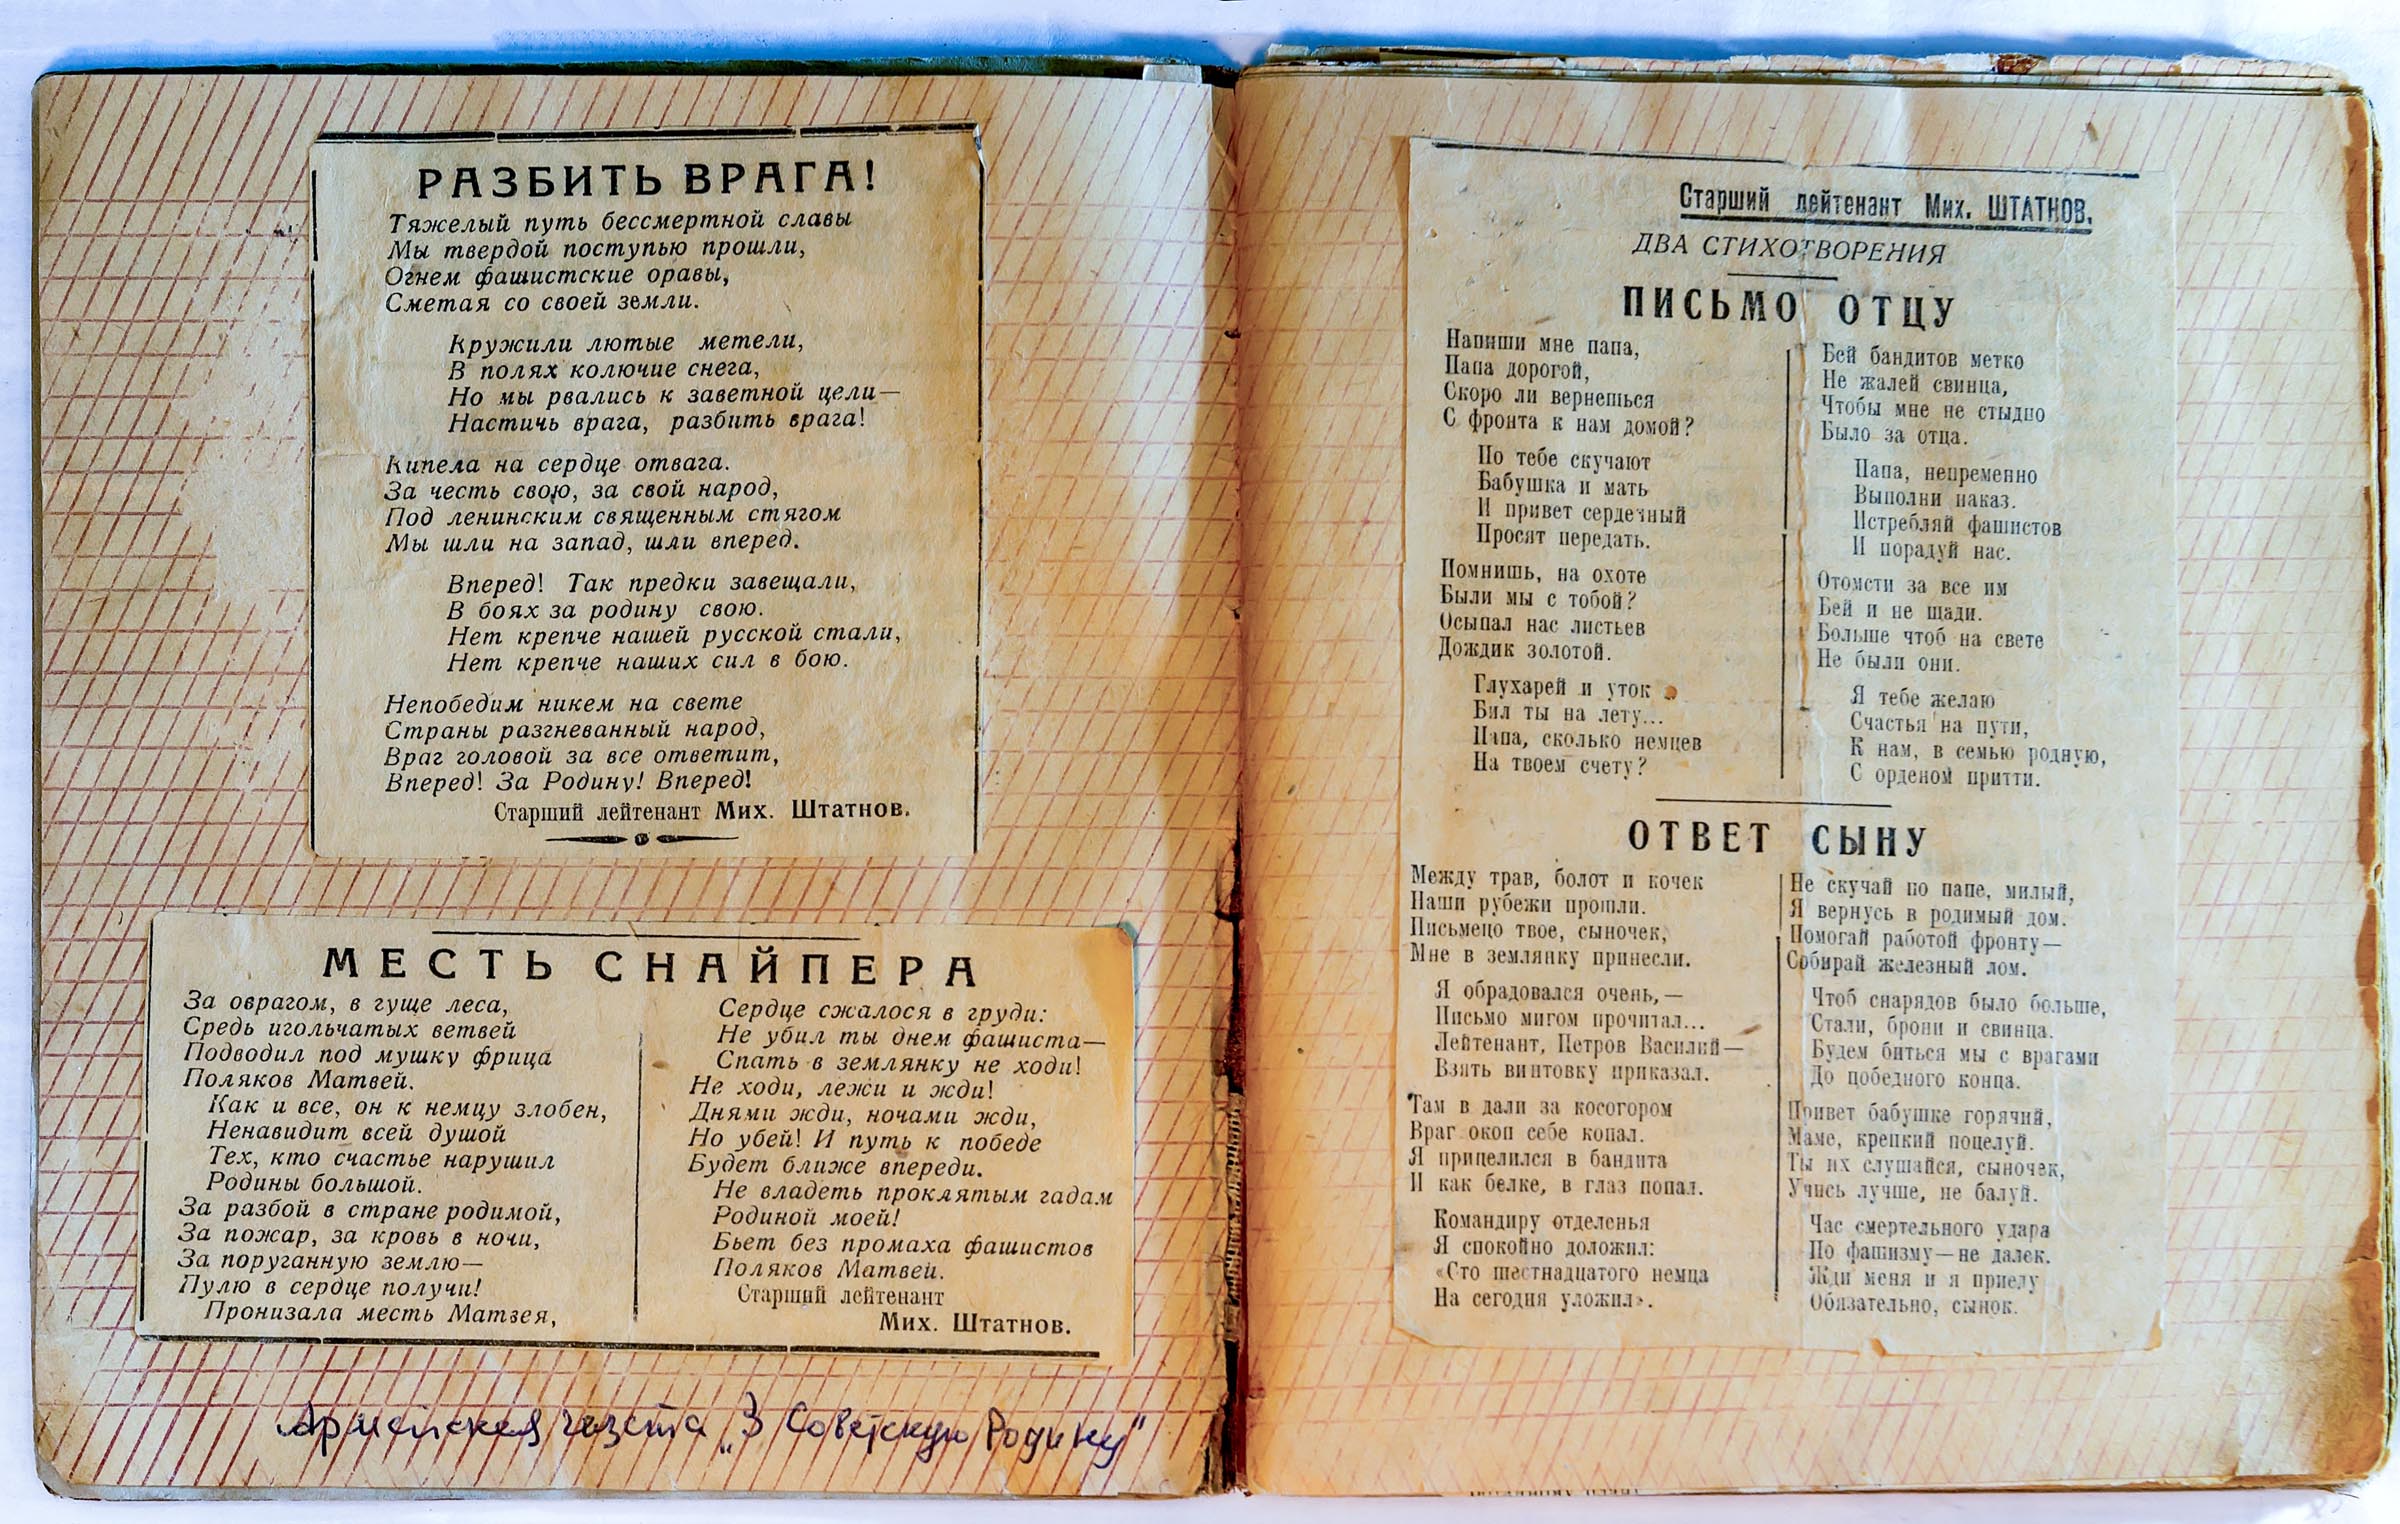 РАЗБИТЬ ВРАГА!
Тяжелый путь бессмертной славы
Мы твердой поступью прошли,
Огнем фашистские оравы,
Сметая со своей земли.
Кружили лютые метели,
В полях колючие снега,
Но мы рвались к заветной цели—
Настичь врага, разбить врага!
Кипела на сердце отвага.
За честь свою, за свой народ,
Под ленинским священным стягом
Мы шли на запад, шли вперед.
Вперед! Так предки завещали,
В боях за родину свою.
Нет крепче нашей русской стали,
Нет крепче наших сил в бою.
Непобедим никем на свете
Страны разгневанный народ,
Враг головой за все ответит,
Вперед! За Родину! Вперед!
Старший лейтенант Мих. Штатнов.
МЕСТЬ СНАЙПЕРА
За оврагом, в гуще леса,
Средь игольчатых ветвей
Подводил под мушку фрица
Поляков Матвей.
Как и все, он к немцу злобен,
Ненавидит всей душой
Тех, кто счастье нарушил
Родины большой.
За разбой в стране родимой,
За пожар, за кровь в ночи,
За поруганную землю—
Пулю в сердце получи!
Пронизала месть Матвея,
Сердце сжалося в груди:
Не убил ты днем фашиста—
Спать в землянку не ходи!
Не ходи, лежи и жди!
Днями жди, ночами жди,
Но убей! И путь к победе
Будет ближе впереди.
Не владеть проклятым гадам
Родиной моей!
Бьет без промаха фашистов
Поляков Матвей.
Старший лейтенант
Мих. Штатнов.
Армейская газета „З Советскую Родину"
Старший лейтенант Мих. ШТАТНОВ.
ДВА СТИХОТВОРЕНИЯ
ПИСЬМО ОТЦУ
Напиши мне папа,
Папа дорогой,
Скоро ли вернешься
С фронта к нам домой?
По тебе скучают
Бабушка и мать
И привет сердечный
Просят передать.
Помнишь, на охоте
Были мы с тобой?
Осыпал нас листьев
Дождик золотой.
Глухарей и уток
Бил ты на лету...
Папа, сколько немцев
На твоем счету?
Бей бандитов метко
Не жалей свинца,
Чтобы мне не стыдно
Было за отца.
Папа, непременно
Выполни наказ.
Истребляй фашистов
И порадуй нас.
Отомсти за все им
Бей и не щади.
Больше чтоб на свете
Не были они.
Я тебе желаю
Счастья на пути,
К нам, в семью родную,
С орденом притти.
ОТВЕТ СЫНУ
Между трав, болот и кочек
Наши рубежи прошли.
Письмецо твое, сыночек,
Мне в землянку принесли.
Я обрадовался очень,—
Письмо мигом прочитал...
Лейтенант, Петров Василий—
Взять винтовку приказал.
Там в дали за косогором
Враг окоп себе копал.
Я прицелился в бандита
И как белке, в глаз попал.
Командиру отделенья
Я спокойно доложил:
«Сто шестнадцатого немца
На сегодня уложил».
Не скучай по папе, милый,
Я вернусь в родимый дом.
Помогай работой фронту—
Собирай железный лом.
Чтоб снарядов было больше,
Стали, брони и свинца.
Будем биться мы с врагами
До победного конца.
Привет бабушке горячий,
Маме, крепкий поцелуй.
Ты их слушайся, сыночек,
Учись лучше, не балуй.
Час смертельного удара
По фашизму—не далек.
Жди меня и я приеду
Обязательно, сынок.